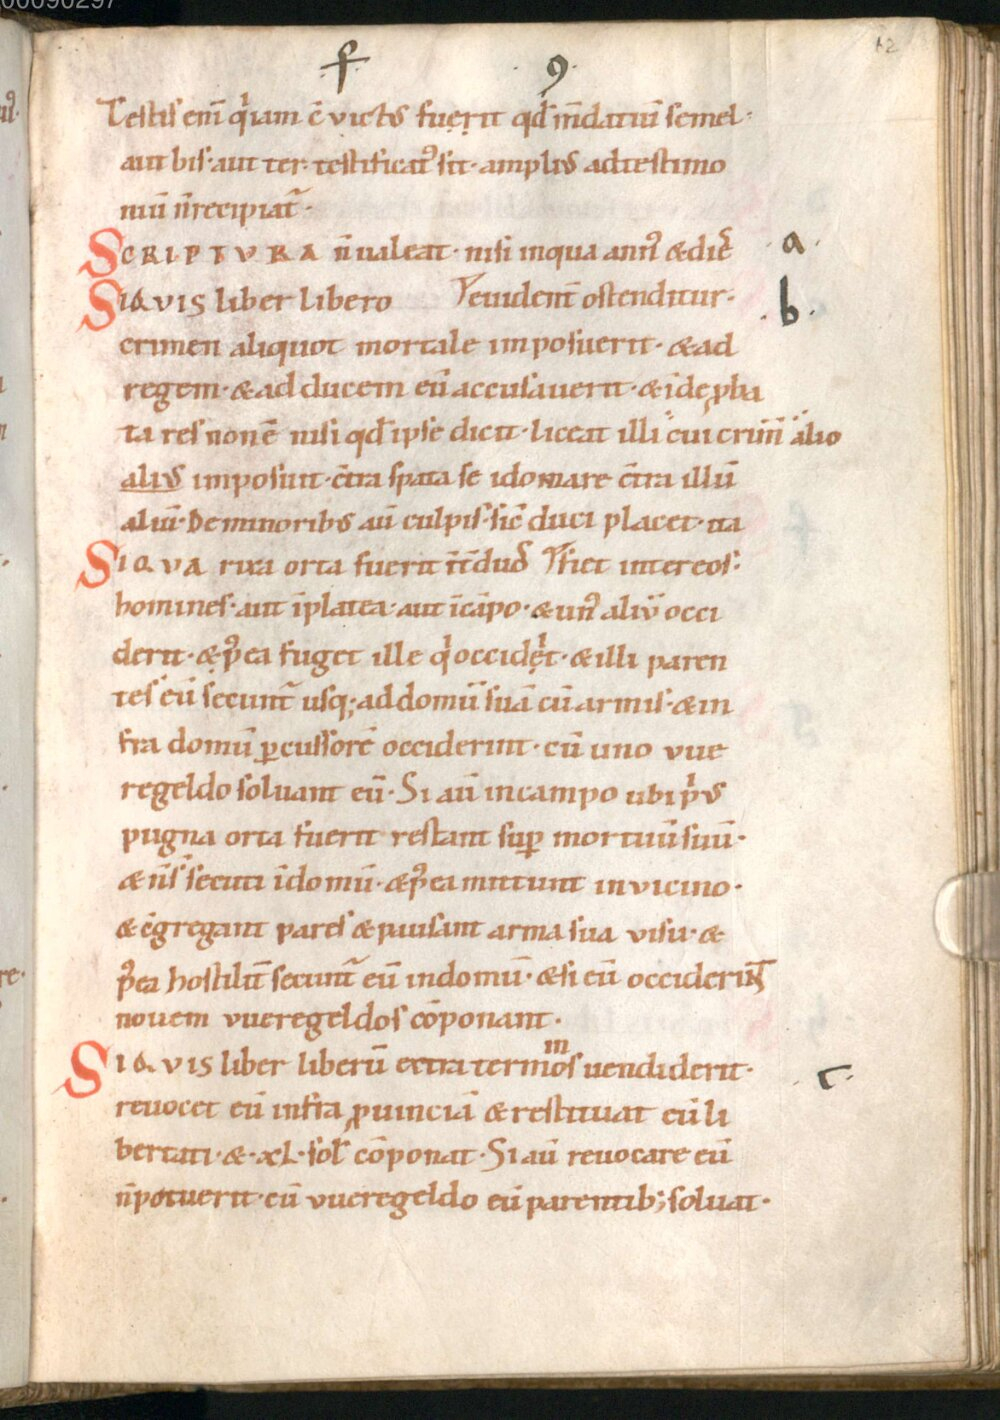 00090297
12
f · 9 ·
Testis eni̅ q̍ iam c̅victꝰ fuerit qđ m̅datiu̅ semel ·
aut bis · aut ter · testificatꝰ sit · ampliꝰ ad testimo
niu̅ n̅ recipiat᷑ ·
SCRIPTVRA n̅ ualeat · nisi in qua annꝰ & die̅ · a ·
SIQVIS liber libero euident᷑ ostenditur · · b ·
crimen aliquot mortale imposuerit · & ad
regem · & ad ducem eu̅ accusauerit · & i̅de ꝓba
ta res non e̅ nisi qđ ipse dicit · liceat illi cui crim̅ alio
aliꝰ imposuit · c̅tra spata se idomare c̅tra illu̅
aliu̅ · De minoribꝰ au̅ culpis · sic̅ duci placet · ita
SIQVA rixa orta fuerit int̅ duoꝰ fiet inter eos :
homines · aut i̅ platea · aut i̅ ca̅po · & unꝰ aliu̅ occi
derit · & p̾ea fuget ille q̍ occidęrit · & illi paren
tes eu̅ secunt᷑ usq; ad domu̅ sua̅ cu̅ armis · & in
fra domu̅ ꝑcussore̅ occiderint · cu̅ uno vue
regeldo soluant eu̅ · Si au̅ in campo ubi p̍ꝰ
pugna orta fuerit restant suꝑ mortuu̅ suu̅ ·
& n̅ s̅ secuti i̅ domu̅ · & p̾ea mittunt in vicino ·
& c̅gregant pares & pausant arma sua visu · &
p̾ea hostilit᷑ secunt᷑ eu̅ in domu̅ · & si eu̅ occiderint
novem vueregeldos co̅ponant ·
SIQVIS liber liberu̅ extra terminos uendiderit · c ·
reuocet eu̅ infra ꝓuincia̅ & restituat eu̅ li
bertati · & · xl · sol̅ co̅ponat · Si au̅ reuocare eu̅
n̅ potuerit · cu̅ vueregeldo eu̅ parentib; soluat ·